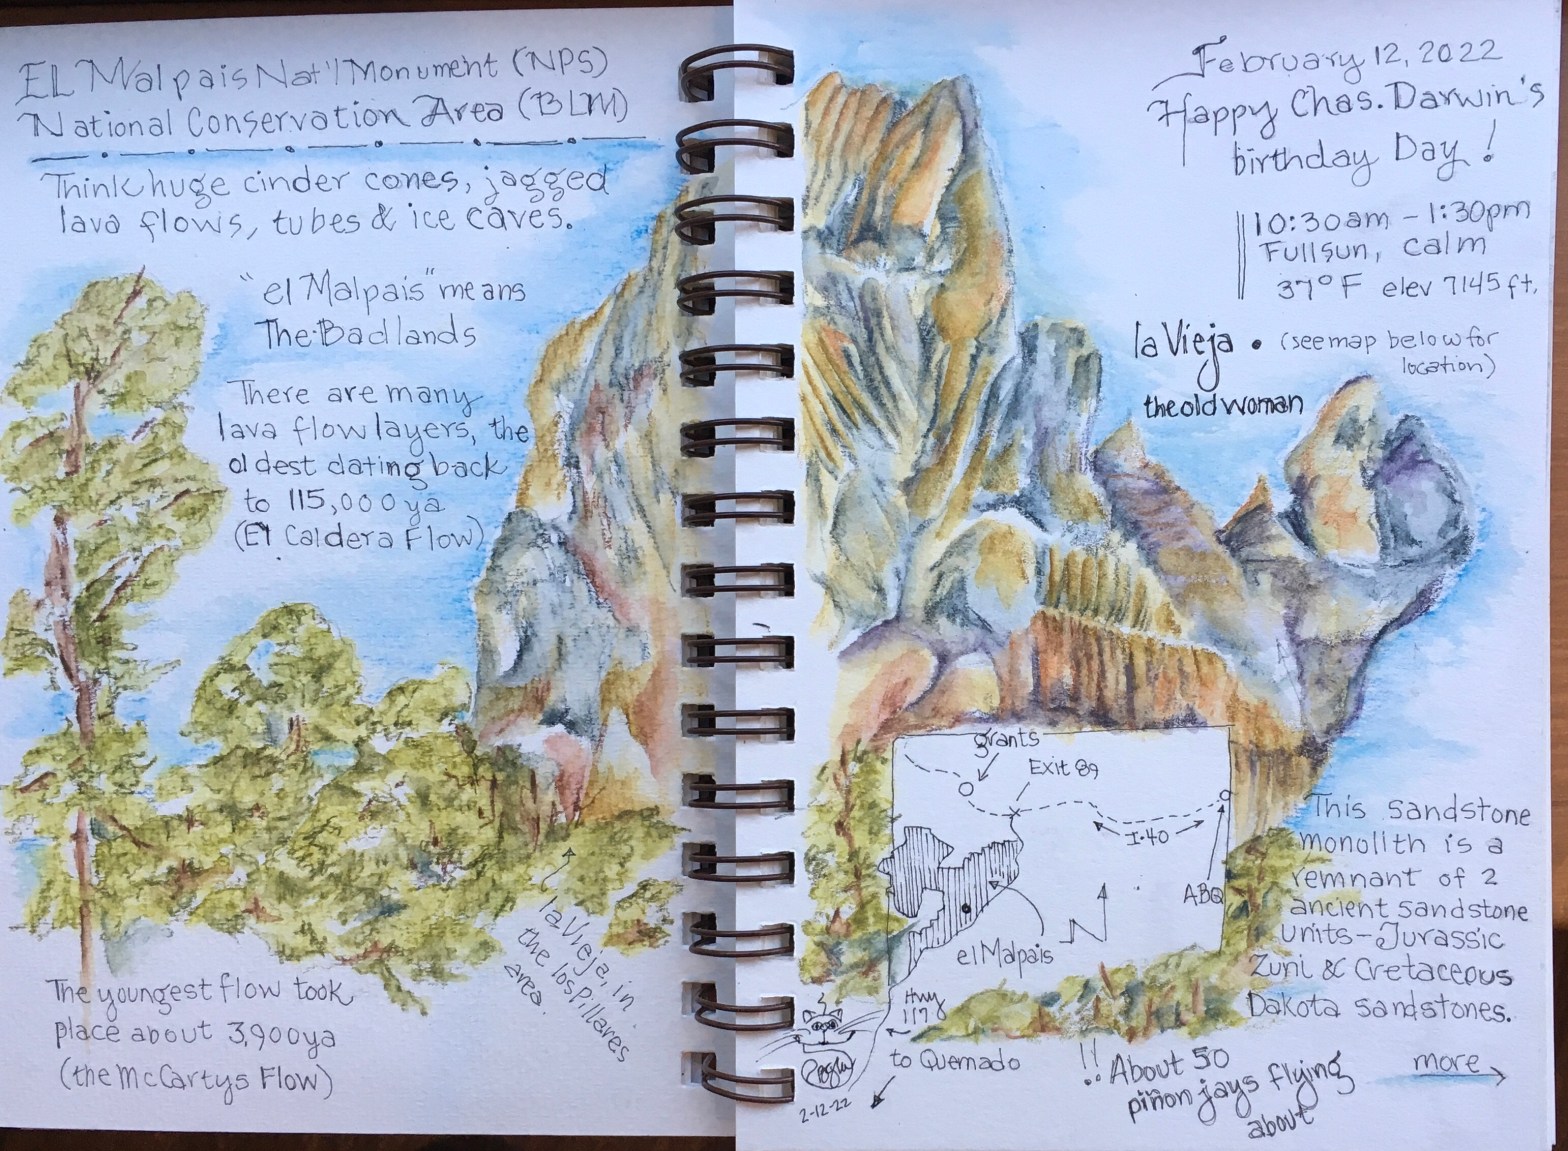 EL Malpais Nat'l Monument (NPS)
National Conservation Area (BLM)
Think huge cinder cones, jagged
lava flows, tubes & ice caves.
"el Malpais" means
The Badlands
There are many
lava flow layers, the
oldest dating back
to 115,000 ya
(El Caldera Flow)
The youngest flow took
place about 3,900ya
(the McCartys Flow)
la Vieja, in
the los Pilares
area.
February 12, 2022
Happy Chas. Darwin's
birthday Day!
10:30am - 1:30pm
Full sun, calm
37°F elev 7145 ft.
la Vieja • (see map below for
location)
the old woman
grants
Exit 89
I-40
ABQ
N
el Malpais
Hwy
117
to Quemado
2-12-22
This sandstone
monolith is a
remnant of 2
ancient sandstone
units-Jurassic
Zuni & Cretaceous
Dakota sandstones.
!! About 50
piñon jays flying
about
more →